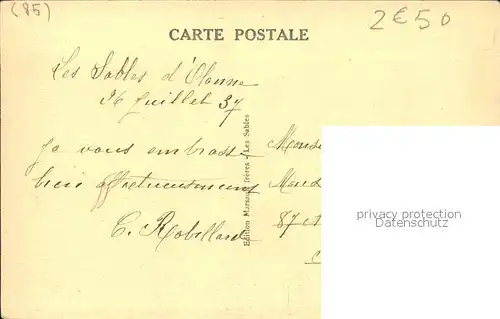 (85)
2€50
CARTE POSTALE
Les Sables d'Olonne
26 Juillet 37
Je vous embrasse
bien affectueusement
C. Robillard
Edition Marsaud frères - Les Sables
87
privacy protection
Datenschutz